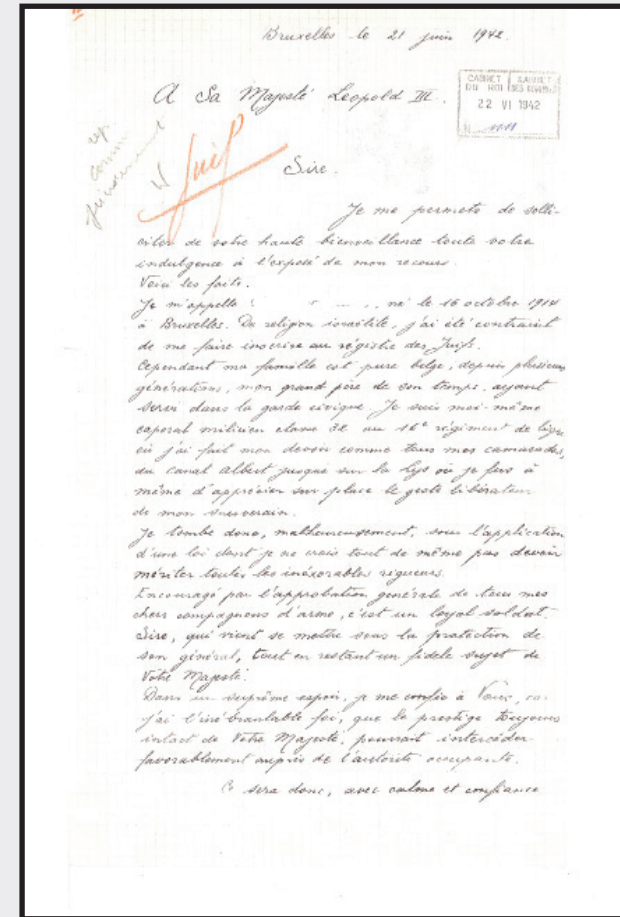 Bruxelles le 21 juin 1942.
CABINET DU ROI
22 VI 1942
N
A Sa Majesté Léopold III.
Juif
Sire.
Je me permets de solli-
citer de votre haute bienveillance toute votre
indulgence à l'exposé de mon recours.
Voici les faits.
Je m'appelle : né le 16 octobre 1914
à Bruxelles. De religion israélite, j'ai été contraint
de me faire inscrire au régistre des Juifs.
Cependant ma famille est pure belge, depuis plusieurs
générations, mon grand père de son temps, ayant
servi dans la garde civique. Je suis moi-même
caporal milicien classe 34 au 16e régiment de ligne
où j'ai fait mon devoir comme tous mes camarades,
du canal Albert jusque sur la Lys où je fus à
même d'apprécier sur place le geste libérateur
de mon souverain.
Je tombe donc, malheureusement, sous l'application
d'une loi dont je ne crois tout de même pas devoir
mériter toutes les inéxorables rigueurs.
Encouragé par l'approbation générale de tous mes
chers compagnons d'arme, c'est un loyal soldat.
Sire, qui vient se mettre sous la protection de
son général, tout en restant un fidèle sujet de
Votre Majesté.
Dans un suprême espoir, je me confie à Vous, car
j'ai l'inébranlable foi, que le prestige toujours
intact de Votre Majesté, pourrait intercéder
favorablement auprès de l'autorité occupante.
Ce sera donc, avec calme et confiance